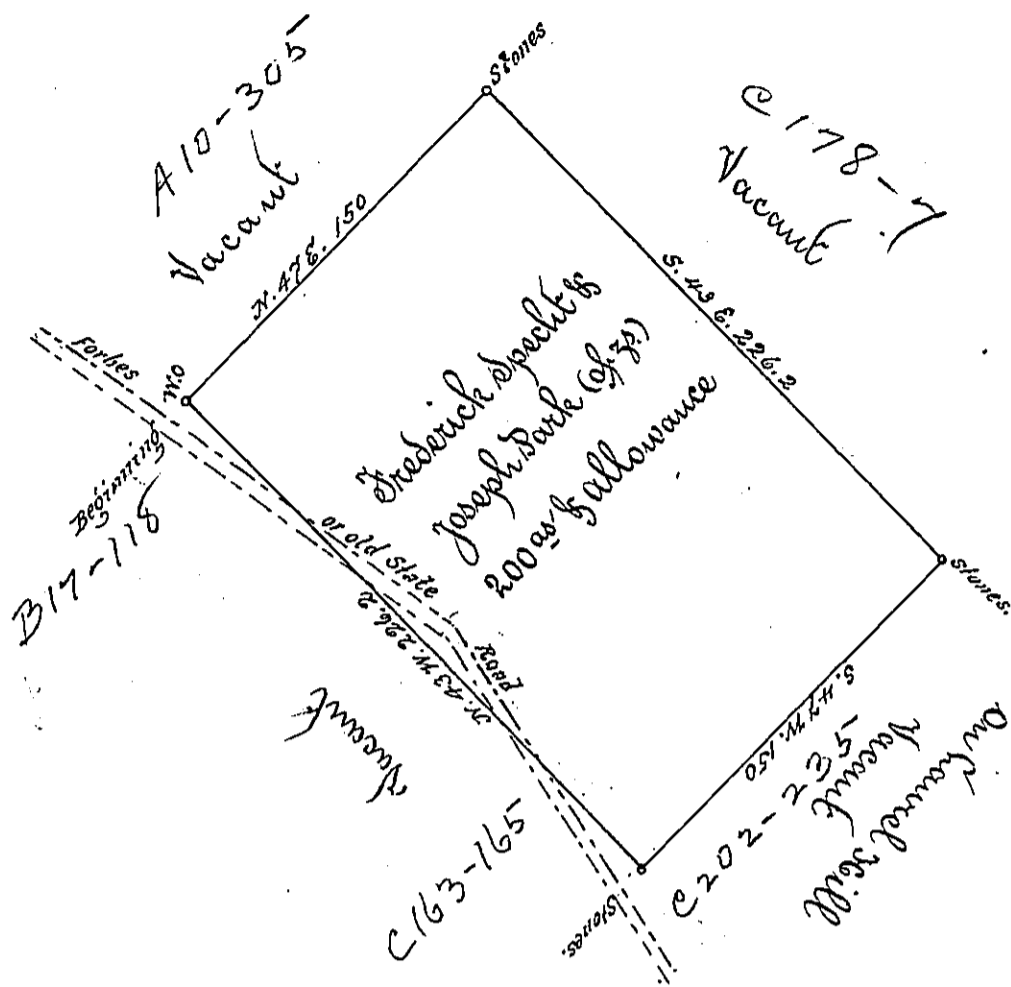 A10-305
Vacant
Stones
C178-7
Vacant
N. 47 E. 150
S. 43 E. 226.2
Forbes
W.O
Beginning
B17-118
Frederick Specht &
Joseph Park
200 as & allowance
or old State
Road
N. 43 W. 226.2
Vacant
C163-165
Stones.
Stones.
S. 47 W. 150
C202-235
Vacant
On Laurel Hill